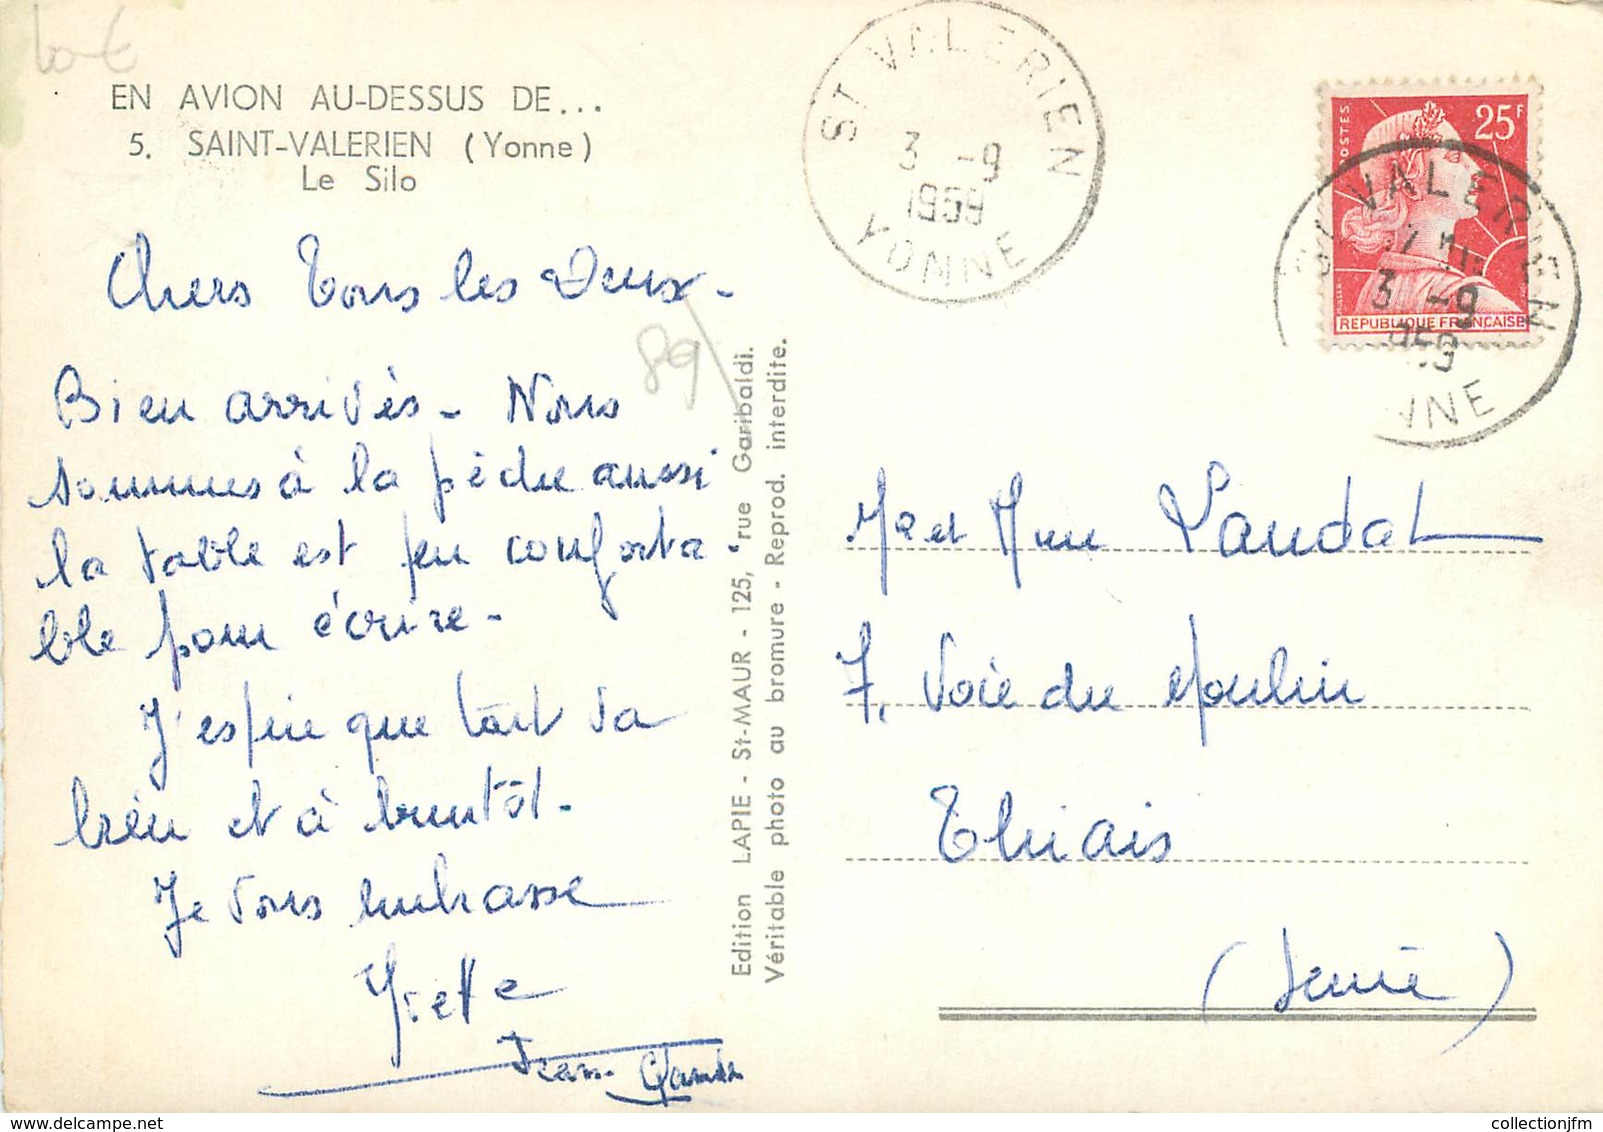 10€
EN AVION AU-DESSUS DE...
5. SAINT-VALERIEN (Yonne)
Le Silo
Chers Tous les Deux-
Bien arrivés - Nous
sommes à la pêche aussi
la table est peu conforta-
ble pour écrire -
J'espère que tout va
bien et à bientôt -
Je vous embrasse
Yvette
Jean-Claude
89
Edition LAPIE - St-MAUR - 125, rue Garibaldi.
Véritable photo au bromure - Reprod. interdite.
ST VALERIEN
3 -9
1959
YONNE
POSTES
25F
REPUBLIQUE FRANÇAISE
ST VALERIEN
3 -9
1959
YONNE
Mr et Mme Landat
7, Voie du Moulin
Thiais
(Seine)
collectionjfm